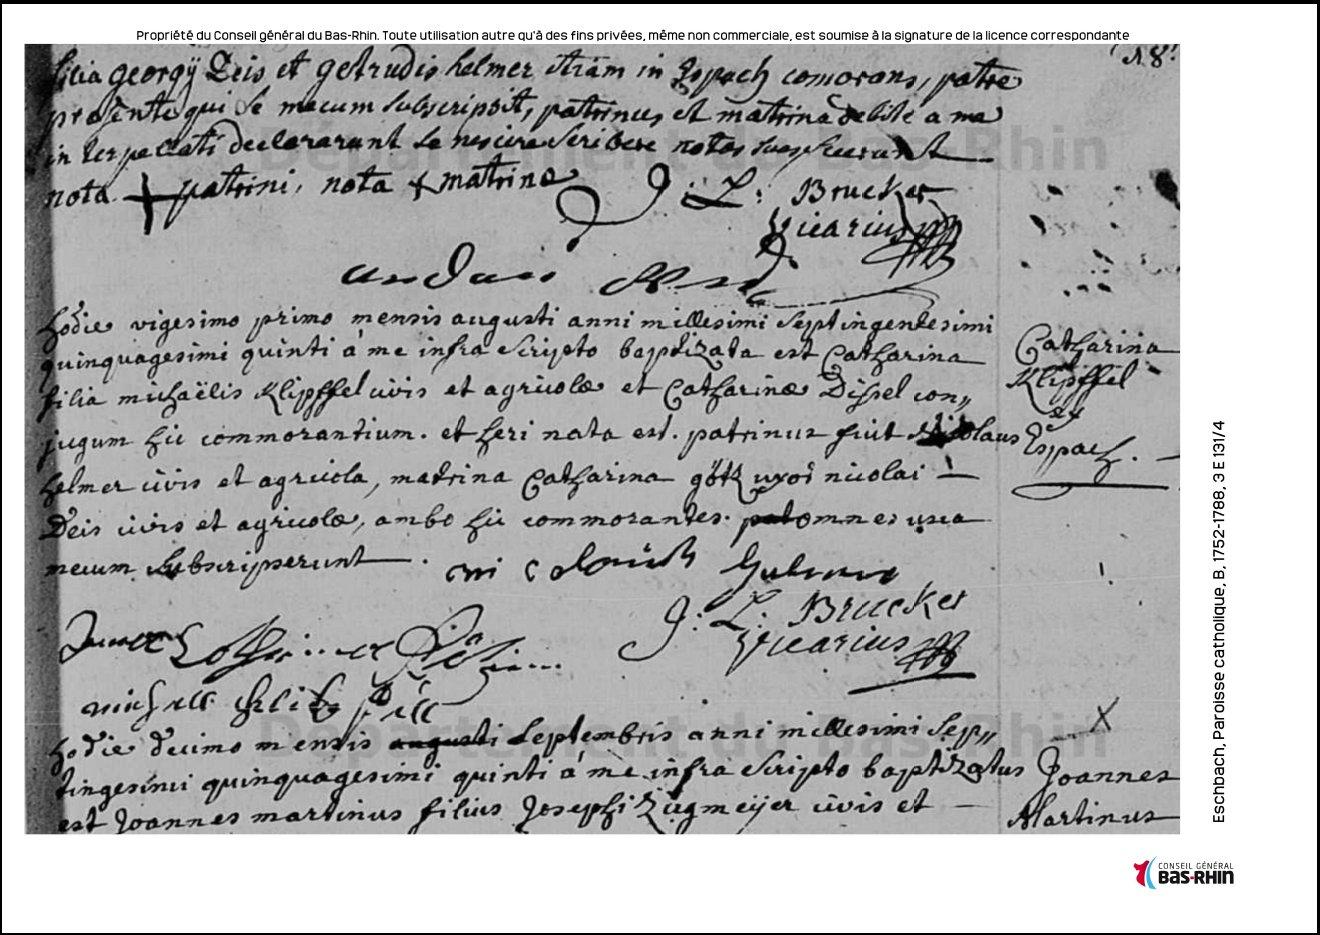 Propriété du Conseil général du Bas-Rhin. Toute utilisation autre qu'à des fins privées, même non commerciale, est soumise à la signature de la licence correspondante
filia georgÿ Deis et getrudis helmer etiam in Espach comorans, patre
presente qui se mecum subscripsit, patrinus, et matrina debite a me
interpellati declararunt se nescire scribere notas suas fecerunt
nota + patrini, nota + matrina
J: L: Brucker
Vicarius
hodie vigesimo primo mensis augusti anni millesimi septingentesimi
quinquagesimi quinti a me infra scripto baptizata est Catharina
filia michaëlis Klipffel civis et agricolæ et Catharinæ Dissel con,,
jugum hic commorantium. et heri nata est. patrinus fuit Nicolaus
helmer civis et agricola, matrina Catharina götz uxor nicolai
Deis civis et agricolæ, ambo hic commorantes. omnes una
mecum subscripserunt
Catharina
Klipffel
ex
Espach.
J: L: Brucker
Vicarius
hodie decimo mensis augusti septembris anni millesimi sep,,
tingesimi quinquagesimi quinti a me infra scripto baptizatus
est Joannes martinus filius Josephi Zugmeÿer civis et
Joannes
Martinus
Département du Bas-Rhin
Département du Bas-Rhin
Eschbach, Paroisse catholique, B, 1752-1788, 3 E 131/4
CONSEIL GÉNÉRAL
BAS-RHIN